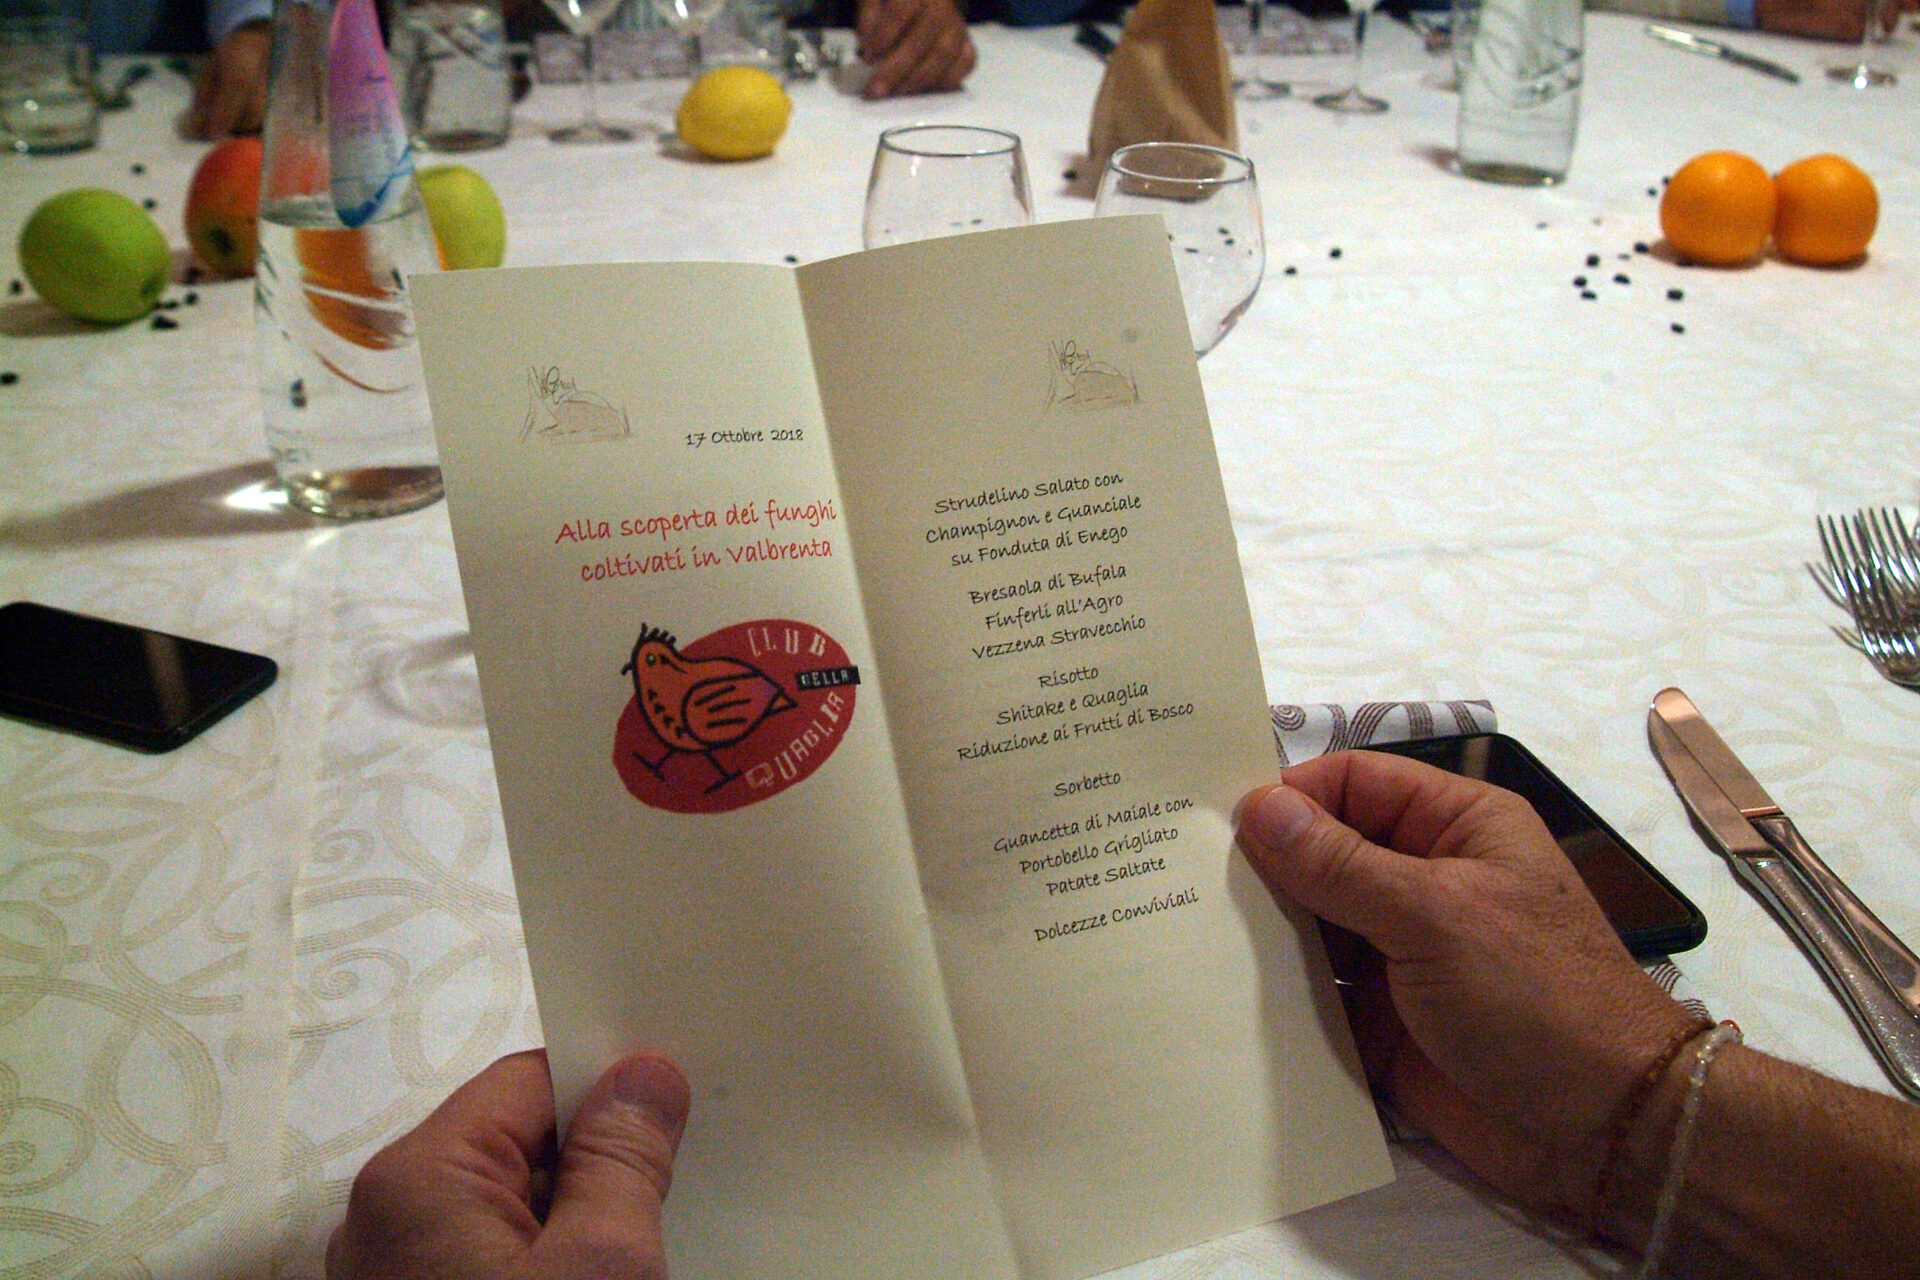 17 Ottobre 2018
Alla scoperta dei funghi
coltivati in Valbrenta
CLUB
DELLA
QUAGLIA
Strudelino Salato con
Champignon e Guanciale
su Fonduta di Enego
Bresaola di Bufala
Finferli all'Agro
Vezzena Stravecchio
Risotto
Shitake e Quaglia
Riduzione ai Frutti di Bosco
Sorbetto
Guancetta di Maiale con
Portobello Grigliato
Patate Saltate
Dolcezze Conviviali